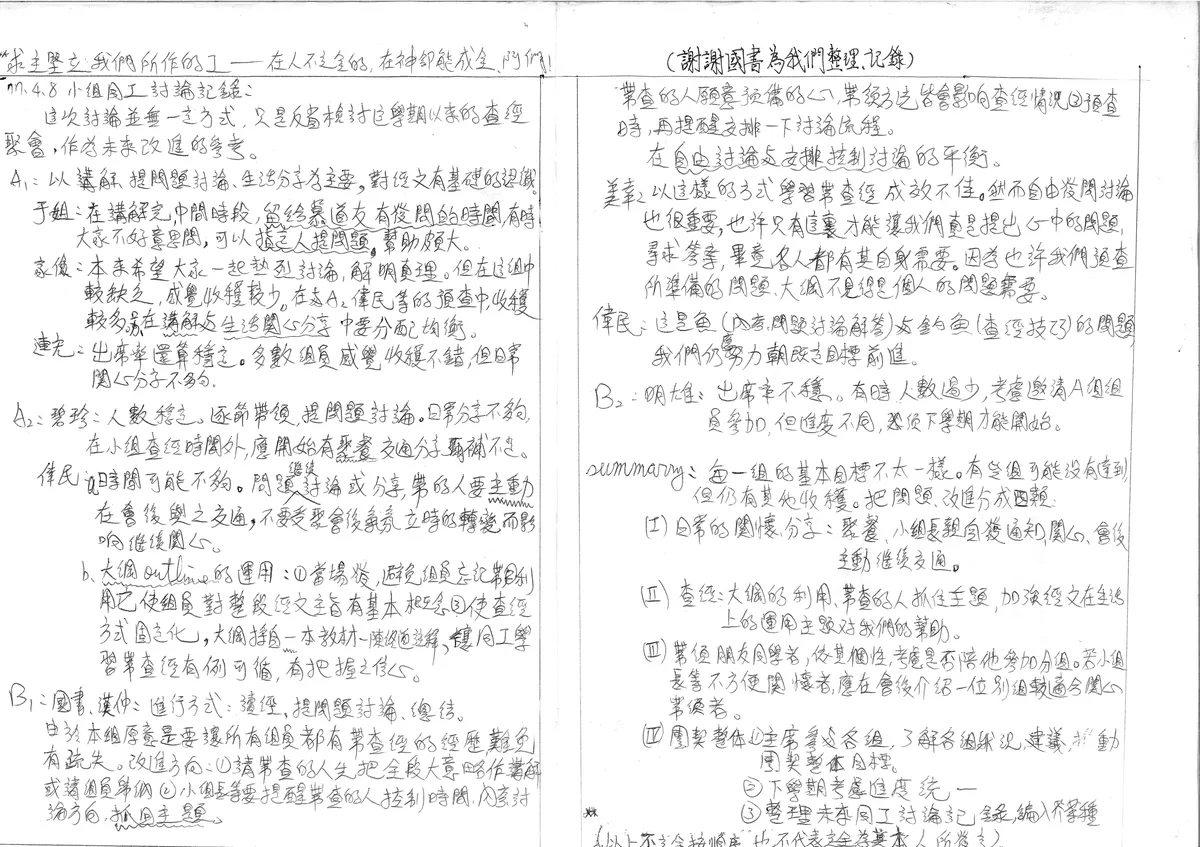 **求主堅立我們所作的工——在人不完全的,在神卻能成全,阿們!
77.4.8 小組同工討論記錄:
這次討論並無一定方式,只是反省檢討這學期以來的查經
聚會,作為未來改進的參考。
A₁:以講解、提問題討論、生活分享為主要,對經文有基礎的認識。
于姐:在講解完中間時段,留給慕道友有發問的時間,有時
大家不好意思問,可以指定人提問題,幫助頗大。
家俊:本來希望大家一起熱烈討論,解明真理。但在這組中
較缺乏,感覺收穫較少。在與A₂偉民等的預查中,收穫
較多。在講解與生活關心分享中要分配均衡。
連光:出席率還算穩定。多數組員感覺收穫不錯,但日常
關心分享不夠.
A₂:碧珍:人數穩定。逐節帶領,提問題討論。日常分享不夠,
在小組查經時間外,應開始有聚餐交通分享彌補不足。
偉民:a.時間可能不夠。問題繼續討論或分享,帶的人要主動
在會後與之交通,不要受聚會後氣氛立時的轉變而影
響繼續關心。
b.大綱outline的運用:①當場發,避免組員忘記帶②利
用它使組員對整段經文主旨有基本概念③使查經
方式固定化,大綱採自一本教材—陳終道註釋,讓同工學
習帶查經有例可循,有把握之信心。
B₁:國書、漢仲:進行方式:讀經、提問題討論、總結。
由於本組原意是要讓所有組員都有帶查經的經歷,難免
有疏失。改進方向:①請帶查的人先把全段大意略作講解
或請組員歸納②小組長等要提醒帶查的人控制時間、內容討
論方向,抓回主題。
(謝謝國書為我們整理、記錄)
帶查的人願意預備的心,帶領方式皆會影響查經情況③預查
時,再提醒安排一下討論流程。
在自由討論與安排控制討論的平衡。
美幸:以這樣的方式學習帶查經成效不佳。然而自由發問討論
也很重要,也許只有這裏才能讓我們真是提出心中的問題,
尋求答案,畢竟各人都有其自身需要。因為也許我們預查
所準備的問題、大綱不見得是個人的問題需要。
偉民:這是魚(內容,問題討論解答)與釣魚(查經技巧)的問題
我們仍應努力朝既定目標前進。
B₂:明雄:出席率不穩。有時人數過少,考慮邀請A組組
員參加,但進度不同,恐須下學期才能開始。
summary:每一組的基本目標不太一樣。有些組可能沒有達到,
但仍有其他收穫。把問題、改進分成四類:
(Ⅰ)日常的關懷、分享:聚餐、小組長親自發通知,關心、會後
主動繼續交通。
(Ⅱ)查經:大綱的利用、帶查的人抓住主題,加強經文在生活
上的運用主題對我們的幫助。
(Ⅲ)帶領朋友同學者,依其個性,考慮是否陪他參加分組。若小組
長等不方便關懷者,應在會後介紹一位別組較適合關心
帶領者。
(Ⅳ)團契整體①主席參與各組,了解各組狀況,建議、推動
團契整體目標。
②下學期考慮進度統一
**③整理未來同工討論記錄,編入芥菜種
(以上不完全按順序,也不代表完全為其本人所發言)